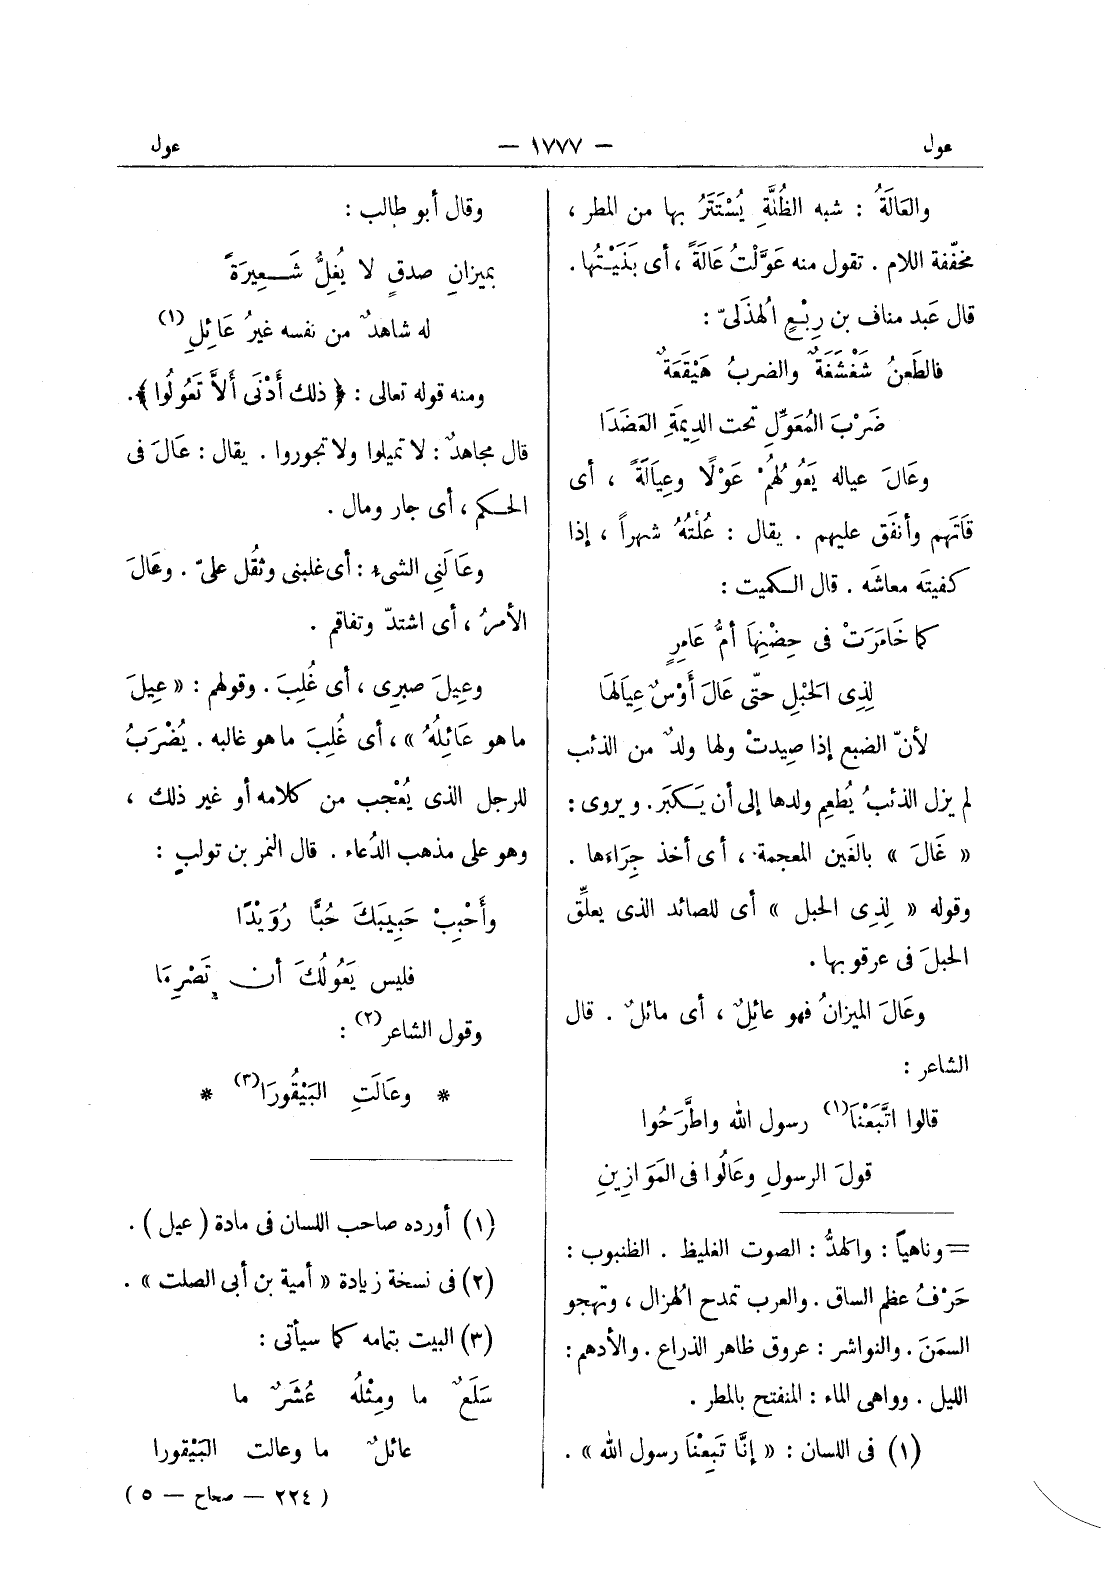 عول
— ١٧٧٧ —
عول
والعَالَةُ : شبه الظُلَّةِ يُسْتَتَرُ بها من المطر ،
مخفّفة اللام . تقول منه عَوَّلْتُ عَالَةً ، أى بَنَيْتُها .
قال عَبد مناف بن رِبْعٍ الهذَلىّ :
فالطَعنُ شَغْشَغَةٌ والضربُ هَيْقَعَةٌ
ضَرْبَ المُعَوِّلِ تحت الدِيمَةِ العَضَدَا
وعَالَ عياله يَعُولُهُمْ عَوْلًا وعِيَالَةً ، أى
قَاتَهم وأنفَق عليهم . يقال : عُلْتُهُ شهراً ، إذا
كفيتَه معاشَه . قال الكميت :
كما خَامَرَتْ فى حِضْنِهَا أمُّ عَامِرٍ
لِذِى الحَبْلِ حتّى عَالَ أَوْسٌ عِيَالَهَا
لأنّ الضبع إذا صِيدتْ ولها ولدٌ من الذئب
لم يزل الذئبُ يُطعِم ولدها إلى أن يَكبَر . ويروى :
« غَالَ » بالغَين المعجمة ، أى أخذ جِرَاءَها .
وقوله « لِذِى الحبل » أى للصائد الذى يعلِّق
الحبلَ فى عرقوبها .
وعَالَ الميزانُ فهو عائِلٌ ، أى مائلٌ . قال
الشاعر :
قالوا اتَّبَعْنَا(١) رسول الله واطَّرَحُوا
قولَ الرسولِ وعَالُوا فى المَوَازِينِ
= وناهياً : والهدُّ : الصوت الغليظ . الظنبوب :
حَرْفُ عظم الساق . والعرب تمدح الهزال ، وتهجو
السمَنَ . والنواشر : عروق ظاهر الذراع . والأدهم :
الليل . وواهى الماء : المنفتح بالمطر .
(١) فى اللسان : « إنَّا تَبِعْنَا رسول الله » .
وقال أبو طالب :
بميزانِ صدقٍ لا يُغِلُّ شَعِيرَةً
له شاهدٌ من نفسه غيرُ عَائِلِ(١)
ومنه قوله تعالى : ﴿ ذلك أَدْنَى أَلاَّ تَعُولُوا ﴾ .
قال مجاهدٌ : لا تميلوا ولا تجوروا . يقال : عَالَ فى
الحكم ، أى جار ومال .
وعَالَنِي الشىء : أى غلبنى وثقُل علىّ . وعَالَ
الأمرُ ، أى اشتدّ وتفاقم .
وعِيلَ صبرِى ، أى غُلِبَ . وقولهم : « عِيلَ
ما هو عَائِلُهُ » ، أى غُلِبَ ما هو غالبه . يُضْرَبُ
للرجل الذى يُعْجب من كلامه أو غير ذلك ،
وهو على مذهب الدُعاء . قال النمر بن تولبٍ :
وأَحْبِبْ حَبِيبَكَ حُبًّا رُوَيْدًا
فليس يَعُولُكَ أن تَصْرِمَا
وقول الشاعر(٢) :
* وعَالَتِ البَيْقُورَا(٣) *
(١) أورده صاحب اللسان فى مادة ( عيل ) .
(٢) فى نسخة زيادة « أمية بن أبى الصلت » .
(٣) البيت بتمامه كما سيأتى :
سَلَعٌ ما ومِثْلُهُ عُشَرٌ ما
عائلٌ ما وعالت البَيْقورا
( ٢٢٤ — صحاح — ٥ )